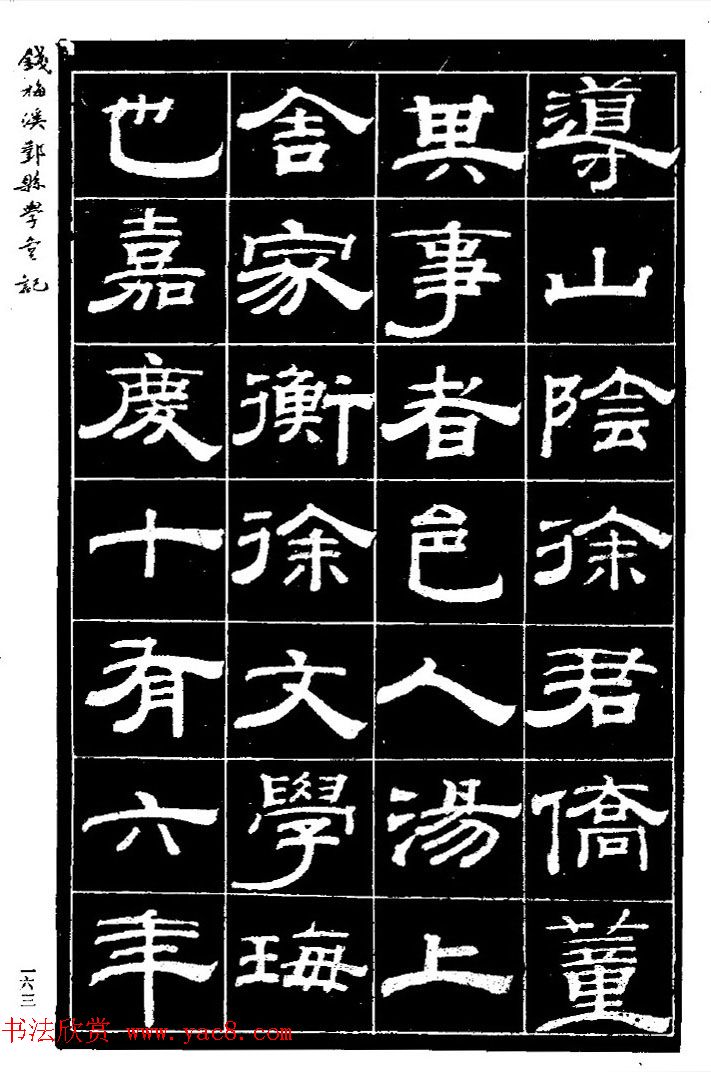 導山陰徐君僑董
其事者邑人湯上
舍家衡徐文學瑦
也嘉慶十有六年
錢梅溪鄞縣學重記
一六三
书法欣赏 www.yac8.com